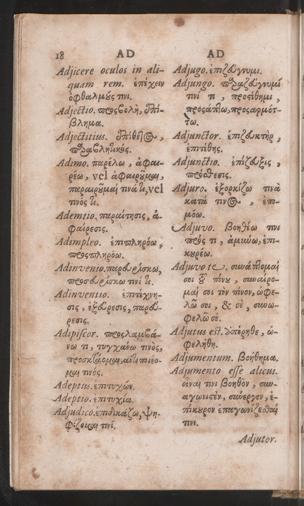 18 AD AD
Adjicere oculos in ali-
quam rem. ἐπέχειν
ὀφθαλμούς τινι.
Adjectio. προσβολή, ἐπί-
βλημα.
Adjectitius. ἐπίθετος,
Adimo. παρέλω, ἀφαι-
ρέω, vel ἀφαιροῦμαι,
παραιροῦμαί τινά τι, vel
τινός τι.
Ademtio. παραίτησις, ἀ-
φαίρεσις.
Adimpleo. ἐπιπληρόω,
προσπληρόω.
Adinvenio. παρευρίσκω,
προσευρίσκω τινί τι.
Adinventio. ἐπιτέχνη-
σις, ἐξεύρεσις, παρεύ-
ρεσις.
Adipiscor. προσλαμβά-
νω τι, τυγχάνω τινὸς,
Adeptus. ἐπιτυχών.
Adeptio. ἐπιτυχία.
Adjudico. ἐπιδικάζω, ψη-
φίζομαί τινί.
Adjugo. ἐπιζεύγνυμι.
Adjungo. παραζεύγνυμί
τινί τι, προστίθημι,
προσάπτω, προσαρμότ-
τω.
Adjunctor. ἐπιζευκτήρ,
ἐπιτίθης.
Adjunctio. ἐπίζευξις,
πρόσθεσις.
Adjuro. ἐξορκίζω τινὰ
κατά τινος, ἐπ-
ομόω.
Adjuvo. βοηθέω τινι
πρός τι, ἀμύνω, ἐπι-
κουρέω.
Adjuvo te, συνάπτομαί
σοι τοῦ πόνου, συναίρο-
μαί σοι τὸν πόνον, ὠφε-
λῶ σοι, & σὲ, συνω-
φελῶ σε.
Adjutus est.
φελήθη.
Adjumentum. βοήθημα.
Adjumento esse alicui.
εἶναί τινι βοηθὸν, συν-
αγωνιστὴν, συνεργὸν, ἐ-
πίκουρον ἐπαγωνίζεσθαί
τινι.
Adjutor.